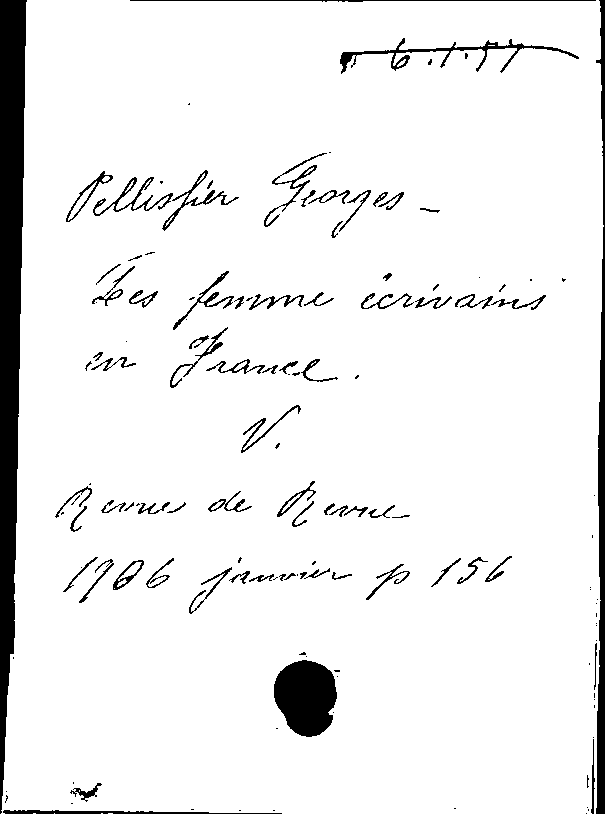 6.1.57
Pellissier Georges -
Les femme écrivains
en France.
V.
Revue de Revue
1906 janvier p 156